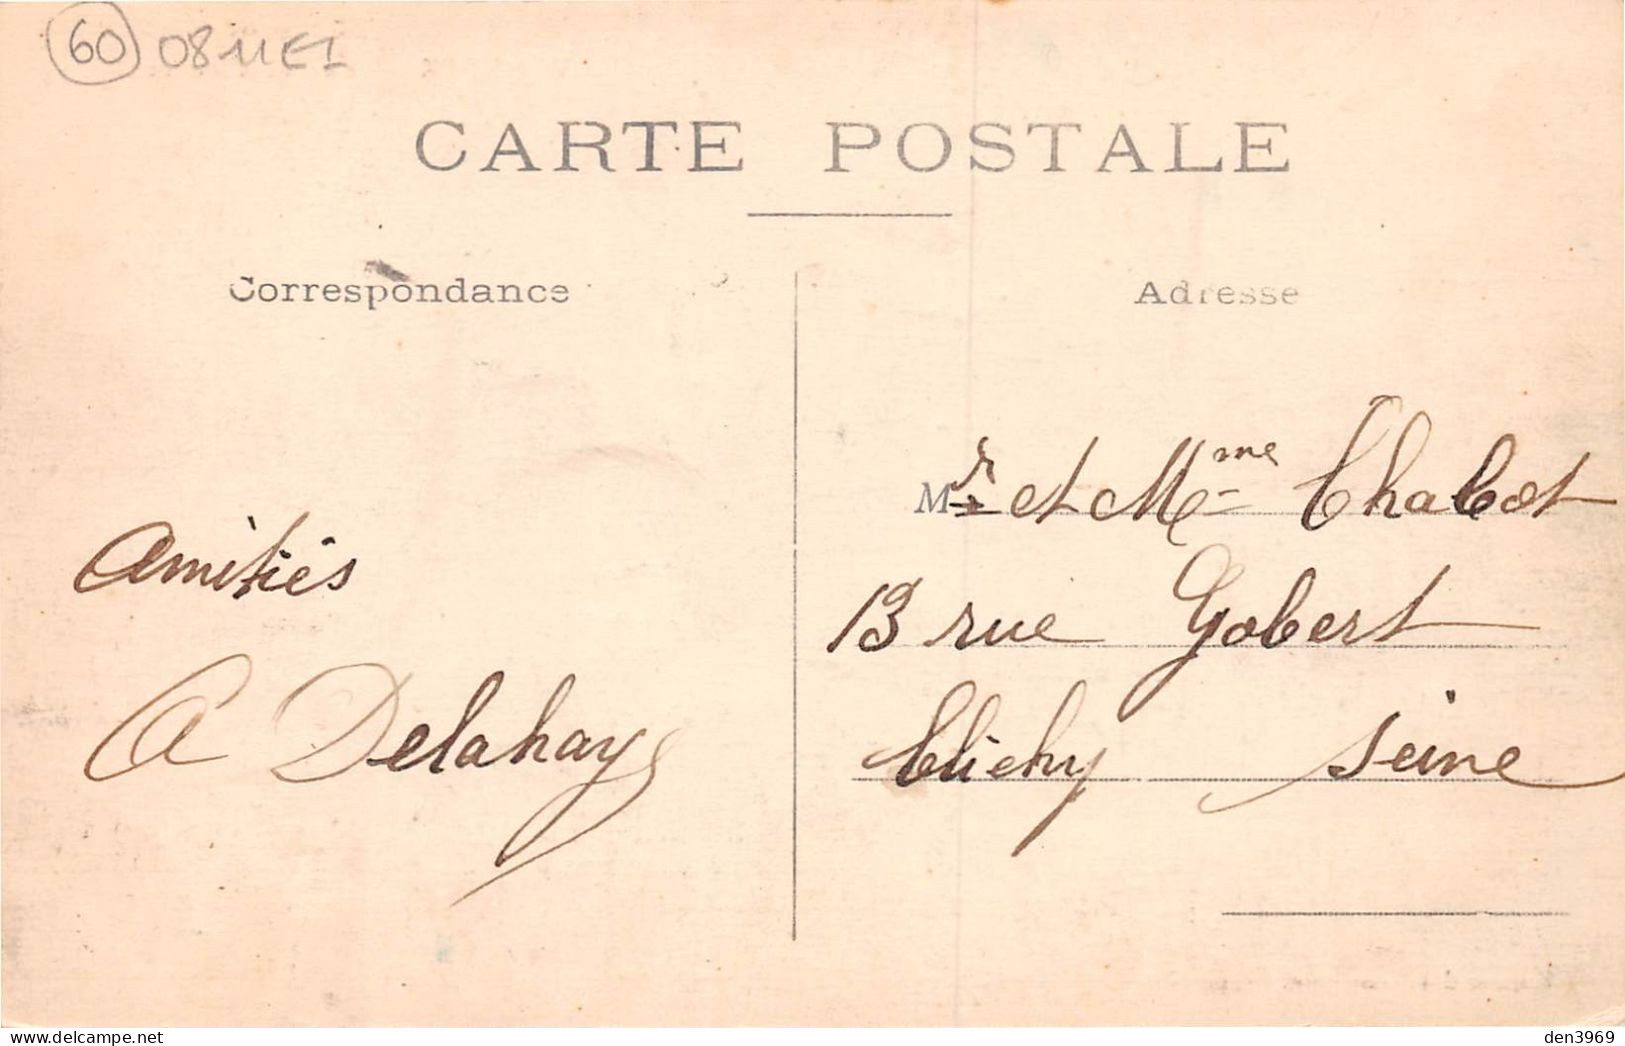 60 0811EI
CARTE POSTALE
Correspondance
Adresse
Mr et Mme Chabot
13 rue Gobert
Clichy Seine
Amitiés
A Delahaye
den3969